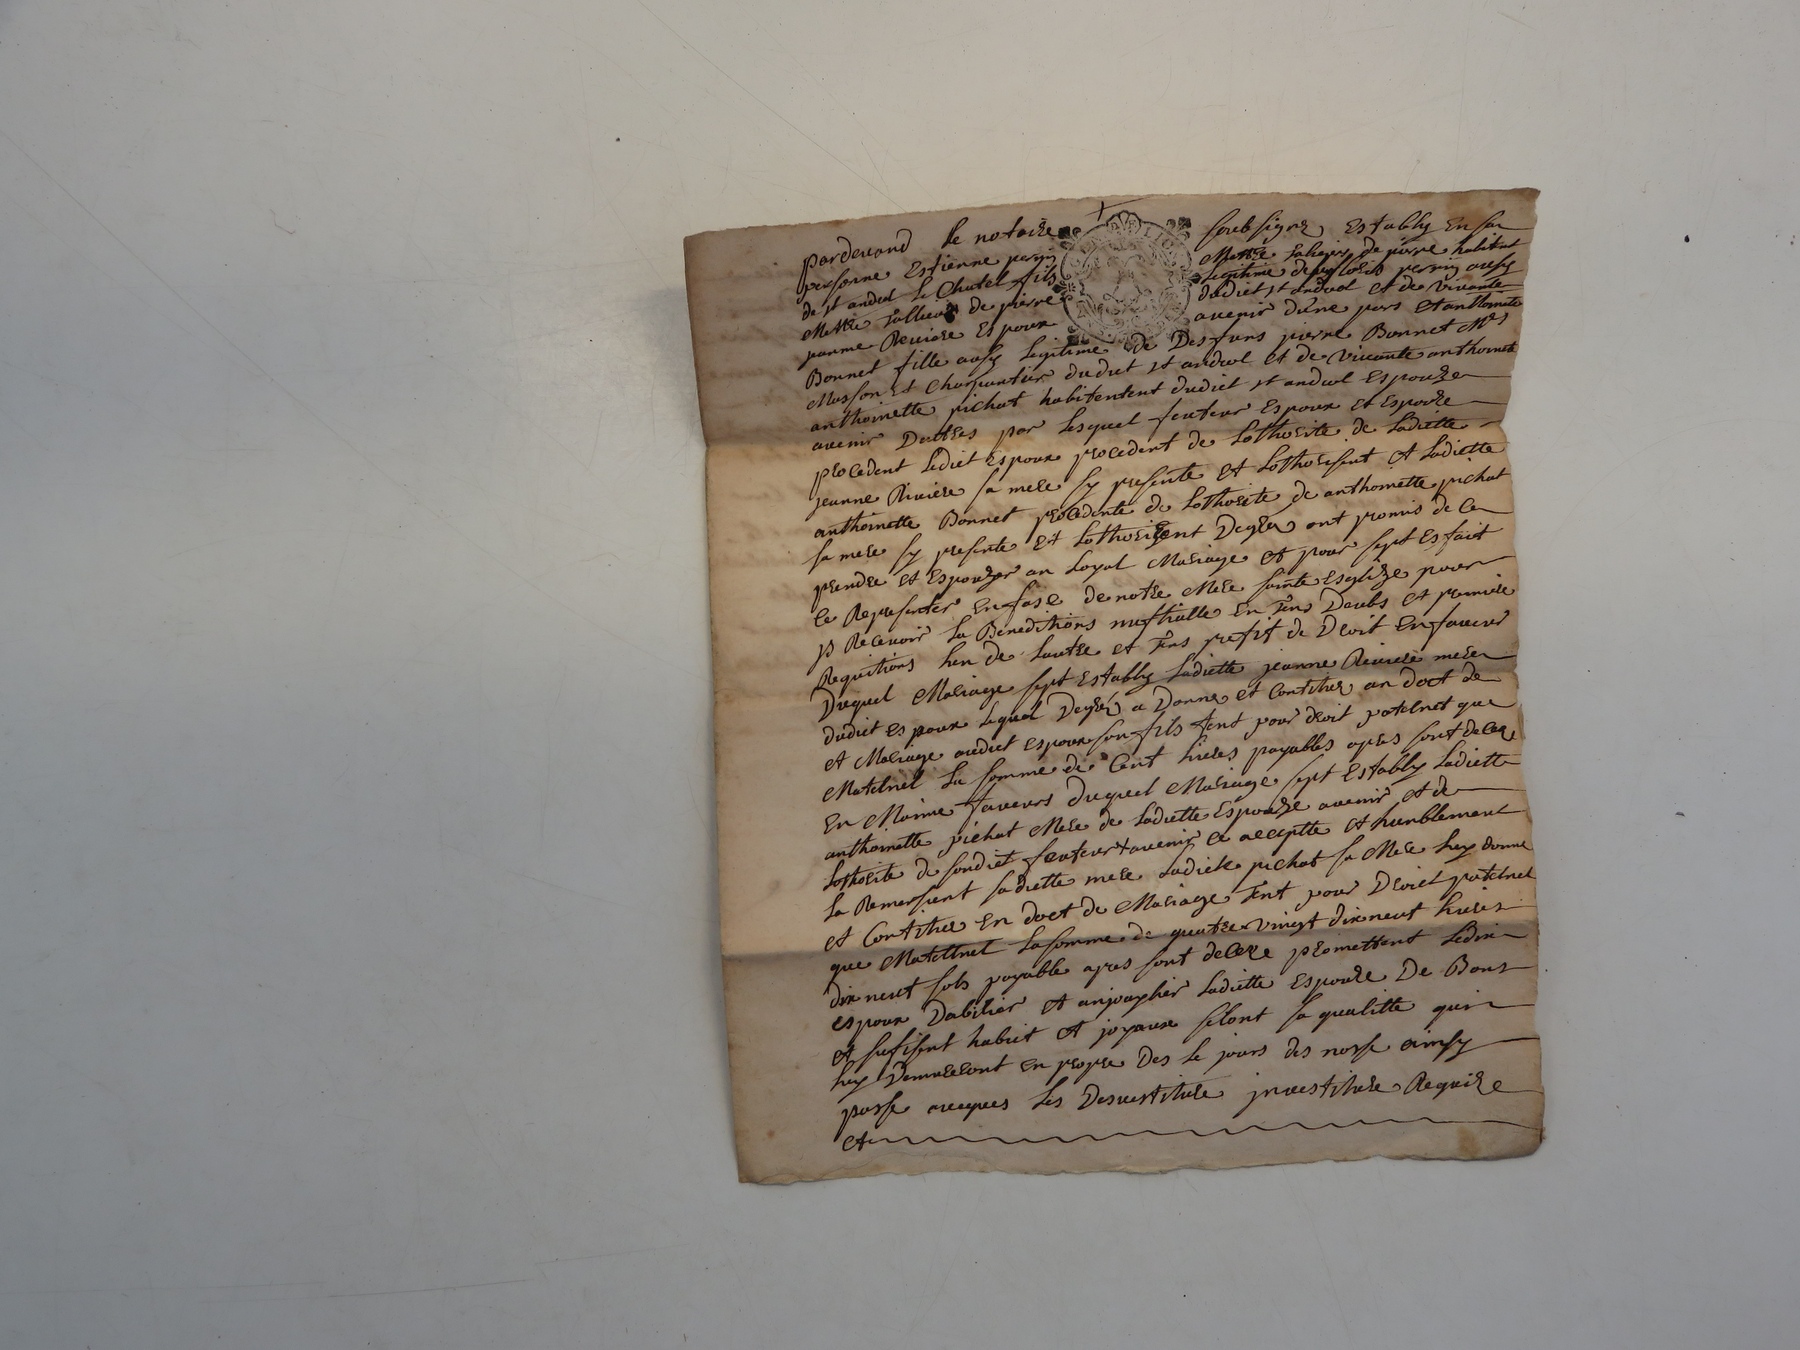 pardevand le notaire soubsigne Estably En sa
personne Estienne perrin Mettre talieur de pierre habitant
de st andeol le Chatel fils legitime de louis perrin aussy
Mettre tallieur de pierre dudict st andeol et de vivante
janne Reviere Espoux avenir dune pars et anthoinette
Bonnet fille aussy legitime de Desfuns pierre Bonnet Mes
Masson Et Charpantier dudict st andeol et de vivante anthoinette
anthoinette pichat habitentent dudict st andeol Espouze
avenir Dautres par lesquel feuteur Espoux et Espouze
procedent ledict Espoux procedent de Lothorite de Ladiette
jeanne Riviere sa mere sy presente et Lothorisent et Ladiette
anthoinette Bonnet procedente de Lothorite de anthoinette pichat
sa mere sy presente Et Lothorizent Degrez ont promis de Ce
prendre et Espouzer an Loyal Mariage et pour sept Esfait
Ce Representer En fase de notre Mere sainte Esglize pour
y Recevoir La Beneditions nuptialle En Tens Deubs et premiere
Requitions Lun de Lautre et Tens prefit de Droit En faveur
Duquel Mariage sept Estably Ladiette jeanne Riviere mere
dudict Espoux Lequel Degrez a Donne et Contitue an doct de
et Mariage audict Espoux son fils tent pour droit patelnet que
Matelnel La somme de Cent livres payables apres sont decere
En Maime faveurs duquel Mariage sept Estably Ladiette
anthoinette pichat Mere de Ladiette Espouze avenir et de
Lothorite de sondiet feuteur avenir Ce aceptte et humblement
La Remersient sadiette mere Ladiete pichat sa Mere Luy donne
et Contitue En doct de Mariage tent pour Droict patelnel
que Matelnel La somme de quatre vingt dix neuf livres
dix neuf sols payable apres sont decere promettent Ledire
espoux Dabilier et anjouaphier Ladiette Espouze De Bons
et sufisent habiet et joyaux selont sa qualitte quir
Luy Demureront En propre Des Le jours des nosse ainsy
passe avecques Les Desvestiture jnvestiture Requize
et